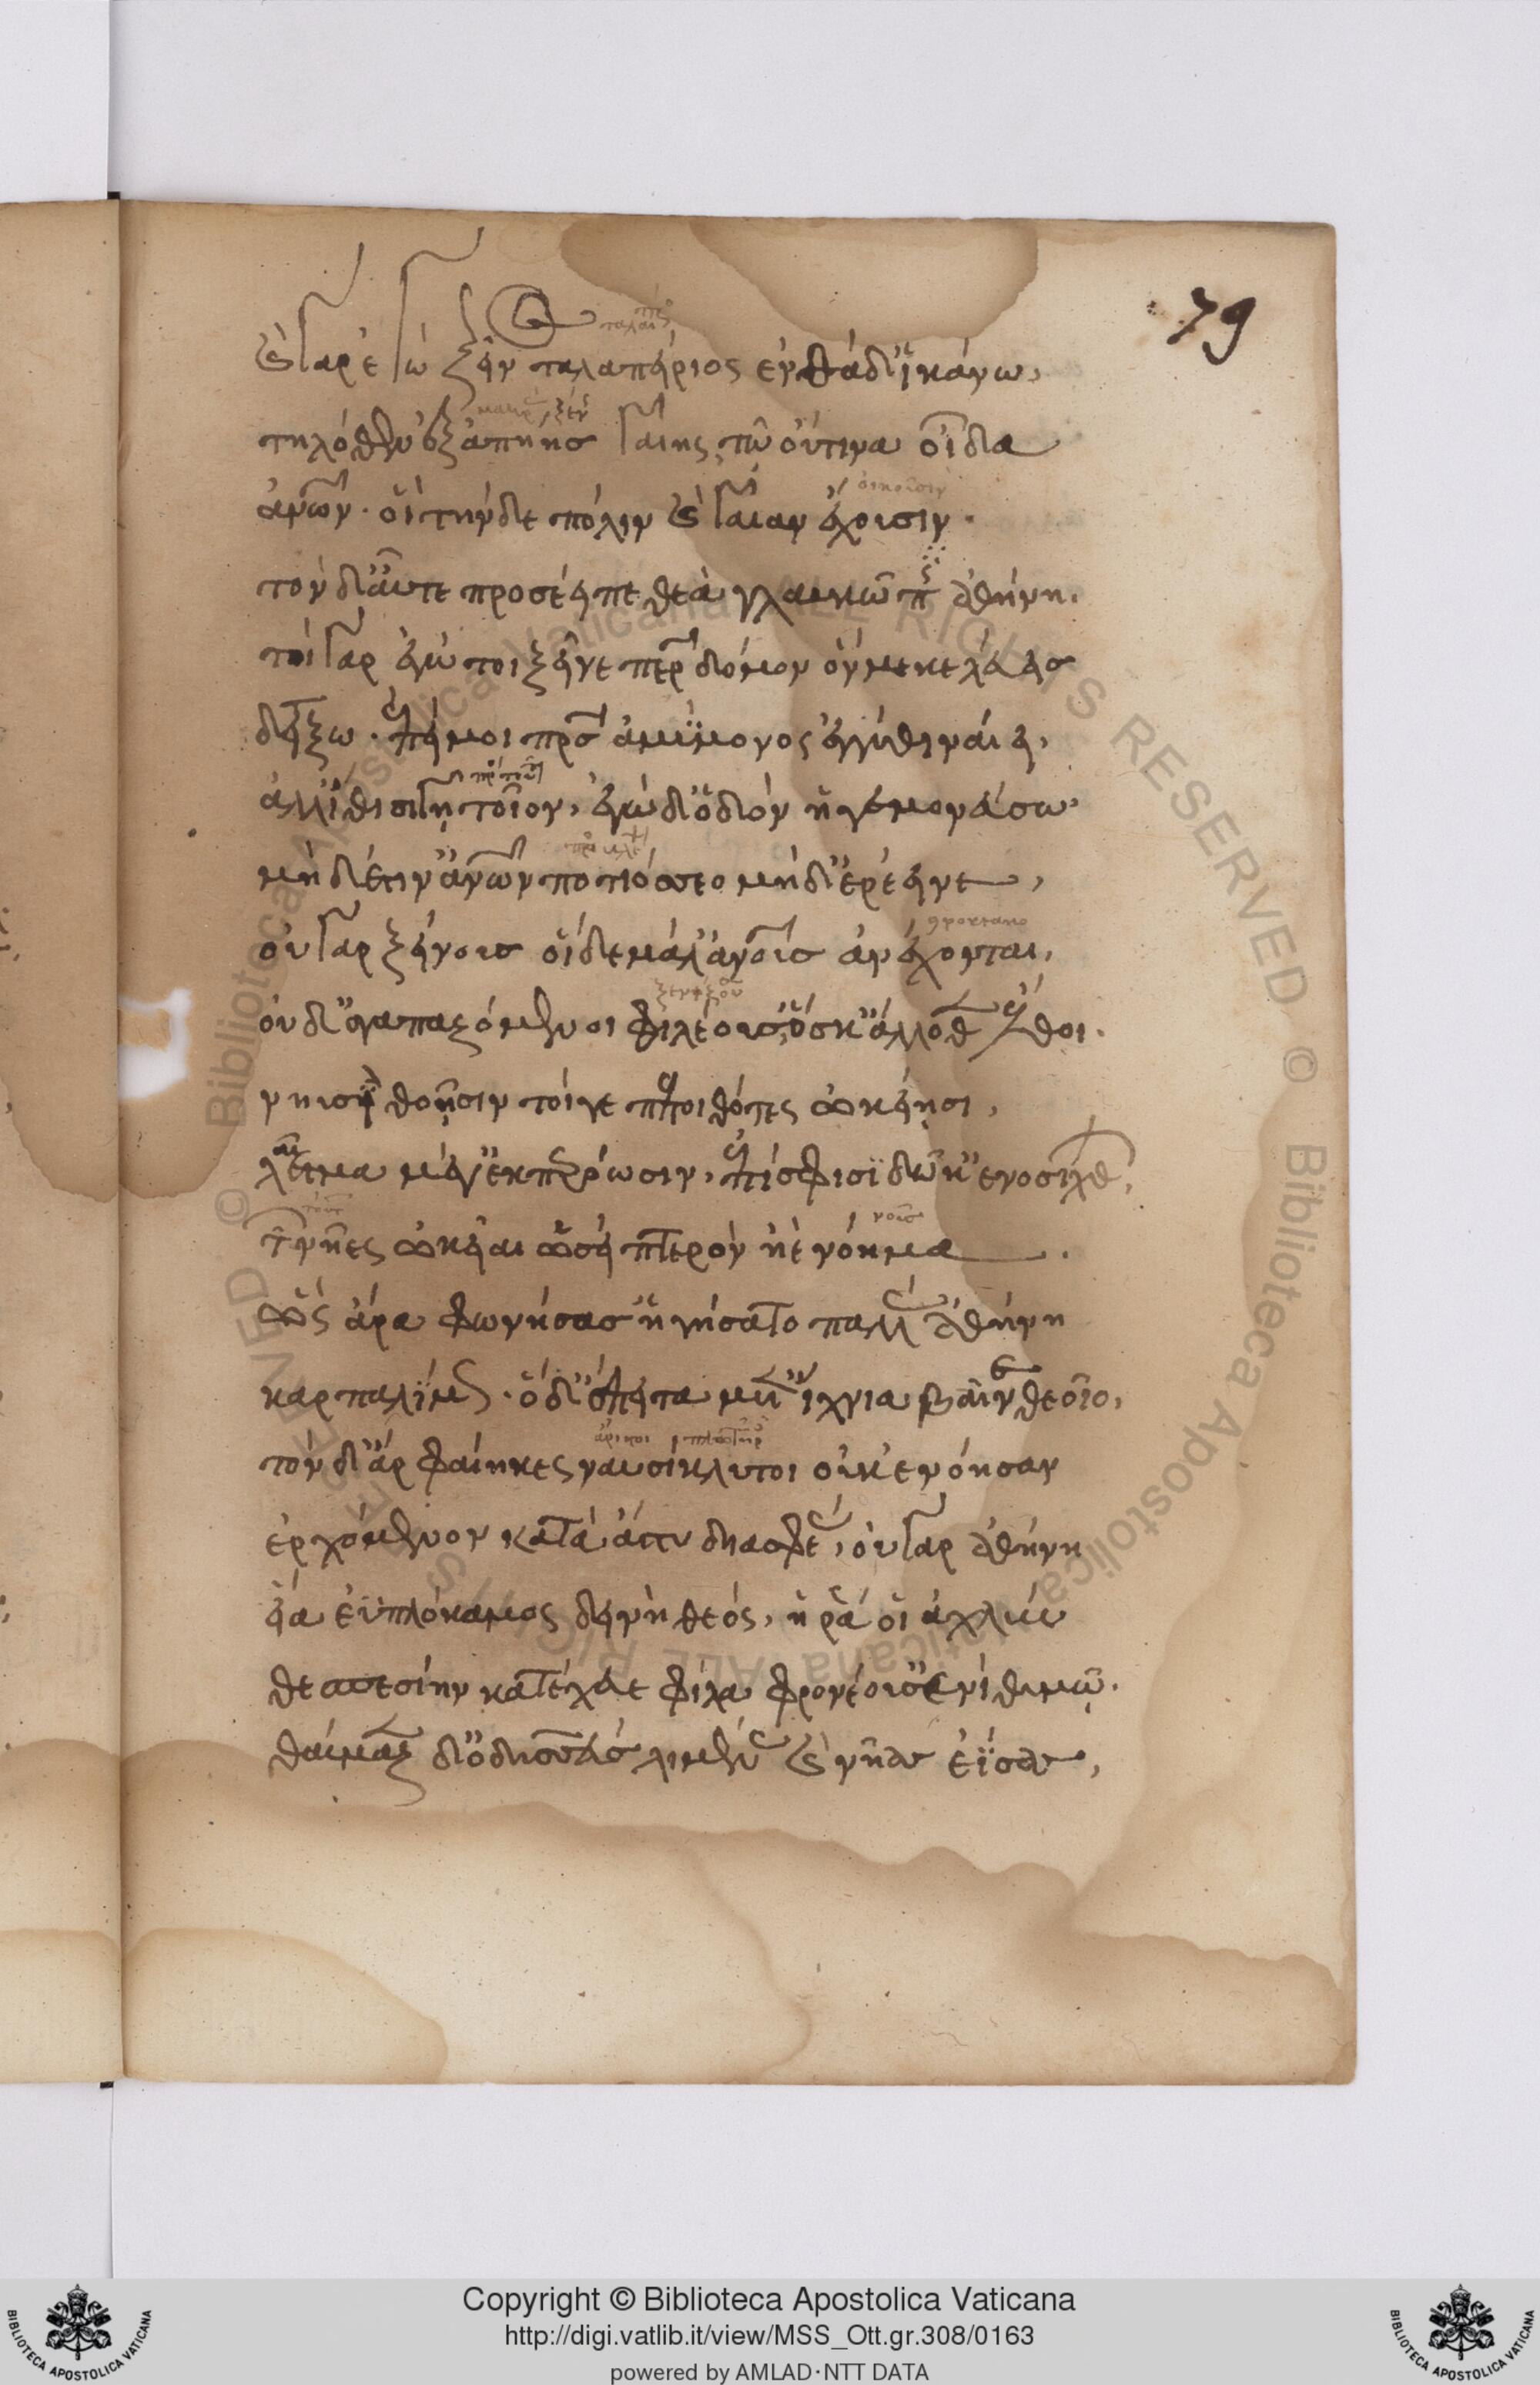 79
καὶ γὰρ ἐγὼ ξεῖν ταλαπείριος ἐνθάδ' ἱκάνω,
τηλόθεν ἐξ ἀπίης γαίης, τῶ οὔτινα οἶδα
ἀνθρώπων. οἳ τήνδε πόλιν καὶ γαῖαν ἔχουσιν.
τὸν δ' αὖτε προσέειπε θεὰ γλαυκῶπις ἀθήνη.
τοὶ γὰρ ἐγώ τοι ξεῖνε πάτερ δόμον ὅν με κελεύεις
δείξω. ἐπεί μοι πατρὸς ἀμύμονος ἐγγύθι ναίει,
ἀλλ' ἴθι σιγῇ τοῖον, ἐγὼ δ' ὁδὸν ἡγεμονεύσω
μηδέ τιν' ἀνθρώπων ποτιόσσεο μηδ' ἐρέεινε,
οὐ γὰρ ξείνους οἵδε μάλ' ἀνθρώπους ἀνέχονται,
οὐδ' ἀγαπαζόμενοι φιλέουσ' ὅς κ' ἄλλοθεν ἔλθοι.
νηυσὶ θοῇσιν τοίγε πεποιθότες ὠκείῃσι,
λαῖτμα μέγ' ἐκπερόωσιν, ἐπεί σφισι δῶκ' ἐνοσίχθων,
τῶν νῆες ὠκεῖαι ὡσεὶ πτερὸν ἠὲ νόημα.
ὣς ἄρα φωνήσασ' ἡγήσατο παλλὰς ἀθήνη
καρπαλίμως. ὁ δ' ἔπειτα μετ' ἴχνια βαῖνε θεοῖο,
τὸν δ' ἄρ φαίηκες ναυσίκλυτοι οὐκ ἐνόησαν
ἐρχόμενον κατὰ ἄστυ διὰ σφέας, οὐ γὰρ ἀθήνη
εἴα ἐϋπλόκαμος δεινὴ θεός, ἥ ῥά οἱ ἀχλὺν
θεσπεσίην κατέχευε φίλα φρονέουσ' ἐνὶ θυμῶ.
θαύμαζε δ' ὀδυσσεὺς λιμένας καὶ νῆας ἐΐσας,
Copyright © Biblioteca Apostolica Vaticana
http://digi.vatlib.it/view/MSS_Ott.gr.308/0163
powered by AMLAD·NTT DATA
BIBLIOTECA APOSTOLICA VATICANA
BIBLIOTECA APOSTOLICA VATICANA